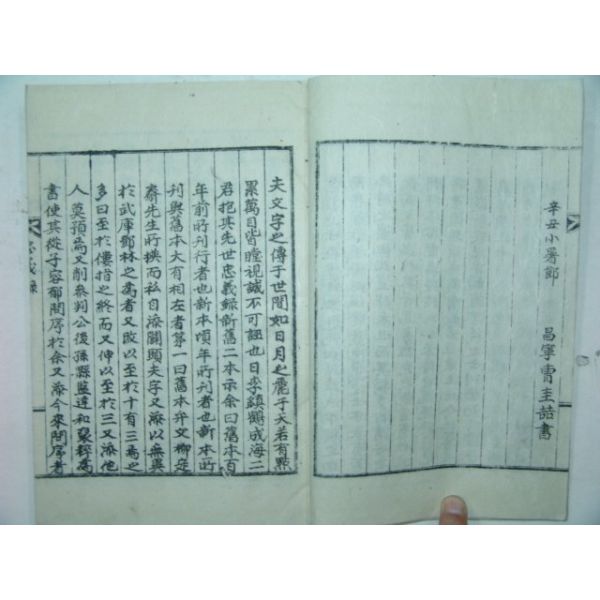 辛丑小暑節
昌寧曺圭喆書
夫文字之傳于世間如日月之麗于天若有點
累萬目皆瞠視誠不可誣也日李鎭鶴成海二
君抱其先世忠義錄新舊二本示余曰舊本百
年前所刊行者也新本頃年所刊者也新本所
刊與舊本大有相左者第一曰舊本弁文柳定
齋先生所撰而私自添關頭夫字又添以無異
於武庫鄧林之爲者又改以至於十有三爲之
多曰至於僂指之終而又伸以至於三又添他
人莫預焉又削參判公後孫縣監達和裒稡爲
書使其從子容郁問序於余又添今來問序者
忠義錄